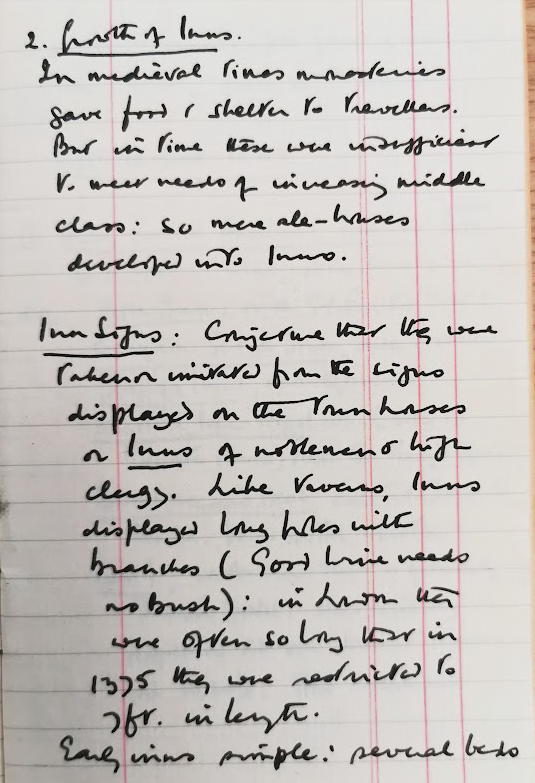 2. Growth of Inns.
In medieval times monasteries
gave food & shelter to travellers.
But in time these were insufficient
to meet needs of increasing middle
class: so mere ale-houses
developed into Inns.
Inn Signs: Conjecture that they were
taken or imitated from the signs
displayed on the town houses
or Inns of noblemen & high
clergy. Like Taverns, Inns
displayed long poles with
branches (Good Wine needs
no Bush): in London they
were often so long that in
1375 they were restricted to
7ft. in length.
Early inns simple: several beds